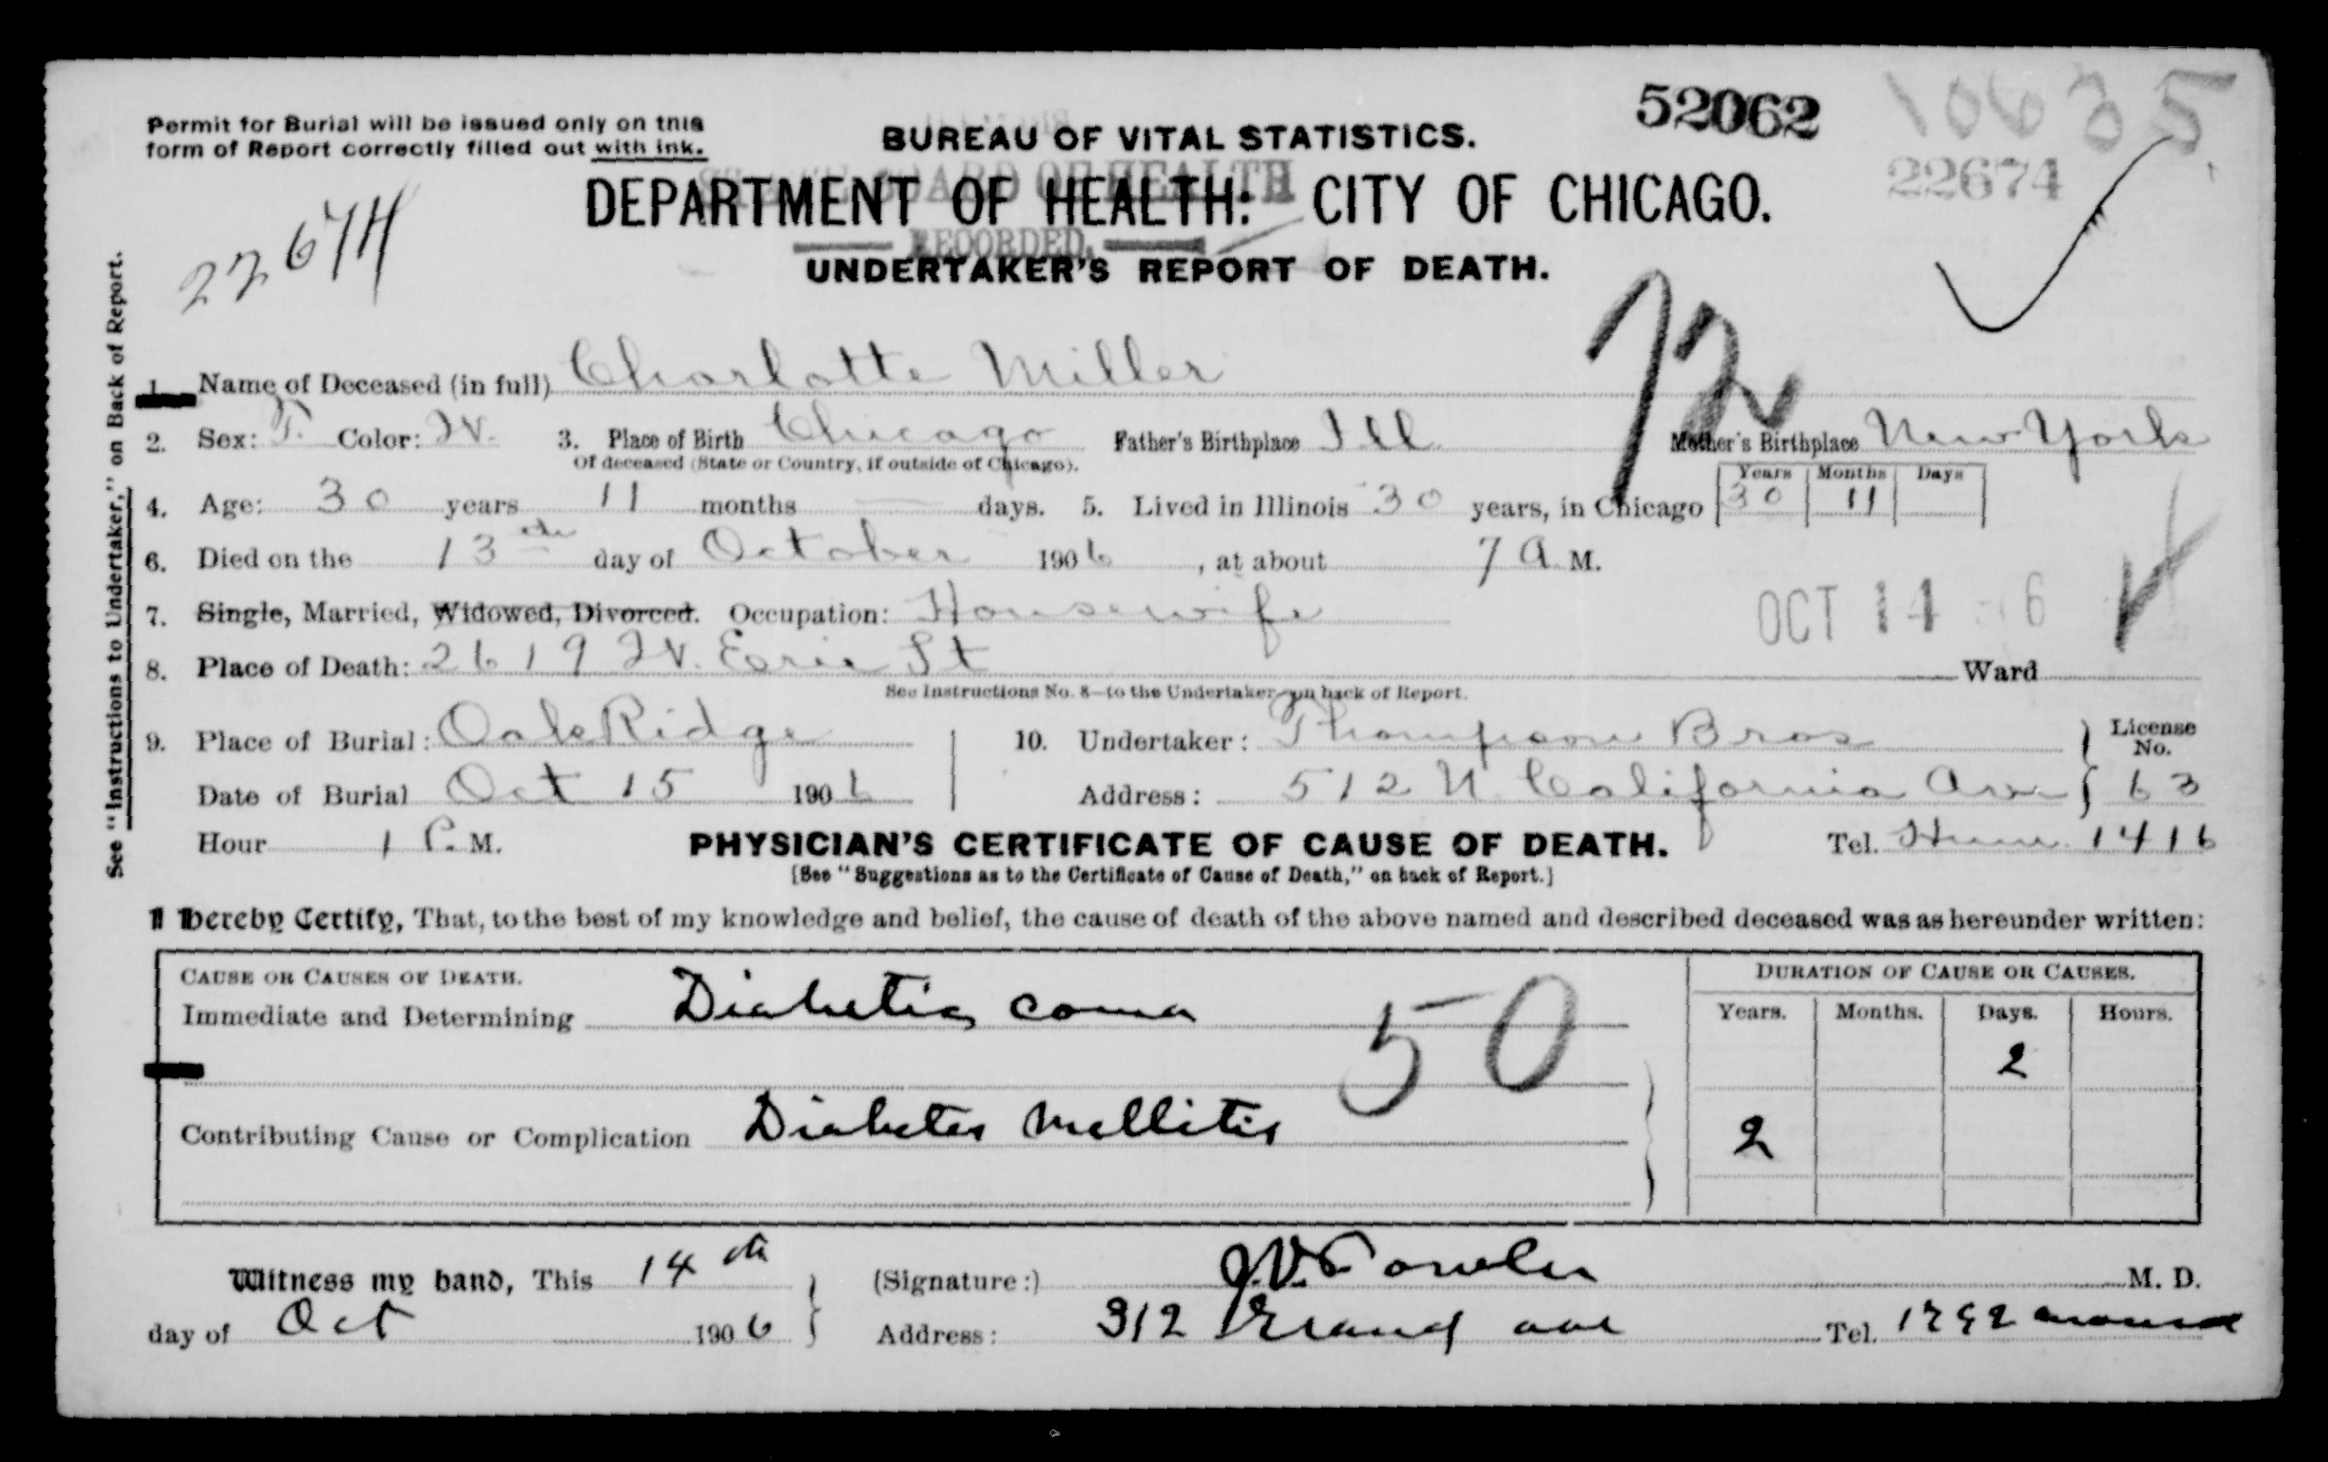 Permit for Burial will be issued only on this
form of Report correctly filled out with ink.
52062
10635
22674
22674
BUREAU OF VITAL STATISTICS.
DEPARTMENT OF HEALTH: CITY OF CHICAGO.
BOARD OF HEALTH
RECORDED.
UNDERTAKER'S REPORT OF DEATH.
See "Instructions to Undertaker," on Back of Report.
72
1. Name of Deceased (in full) Charlotte Miller
2. Sex: F. Color: W. 3. Place of Birth Chicago Father's Birthplace Ill Mother's Birthplace New York
Of deceased (State or Country, if outside of Chicago).
Years Months Days
4. Age: 30 years 11 months — days. 5. Lived in Illinois 30 years, in Chicago 30 11
6. Died on the 13th day of October 1906, at about 7 A. M.
7. Single, Married, Widowed, Divorced. Occupation: Housewife
OCT 14 6
8. Place of Death: 2619 W. Erie St Ward
See Instructions No. 8—to the Undertaker—on back of Report.
9. Place of Burial: Oak Ridge 10. Undertaker: Thompson Bros License No.
Date of Burial Oct 15 1906 Address: 512 N California Ave 63
Hour 1 P. M. Tel. Hum. 1416
PHYSICIAN'S CERTIFICATE OF CAUSE OF DEATH.
[See "Suggestions as to the Certificate of Cause of Death," on back of Report.]
I hereby Certify, That, to the best of my knowledge and belief, the cause of death of the above named and described deceased was as hereunder written:
CAUSE OR CAUSES OF DEATH. DURATION OF CAUSE OR CAUSES.
Immediate and Determining Diabetic coma 50 Years. Months. Days. Hours.
2
Contributing Cause or Complication Diabetes Mellitis 2
Witness my hand, This 14th (Signature:) M. D.
day of Oct 1906 Address: 312 Grand ave Tel.